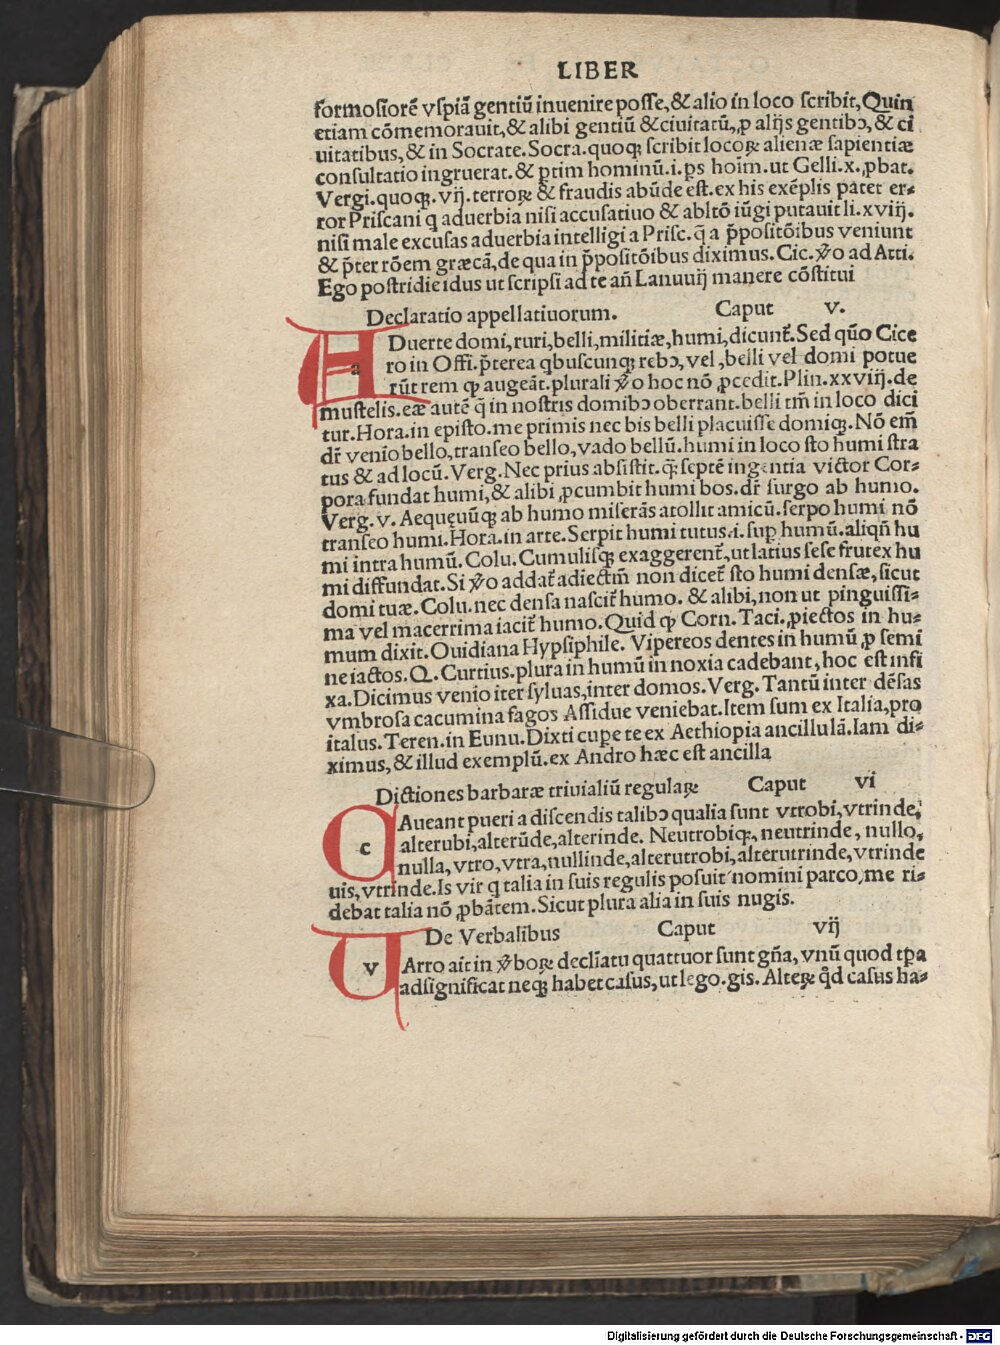 LIBER
formosiorē vspiā gentiū inuenire posse, & alio in loco scribit, Quin
etiam cōmemorauit, & alibi gentiū & ciuitatū, ꝓ alijs gentibꝫ, & ci
uitatibus, & in Socrate. Socra. quoqꝫ scribit locoꝝ alienæ sapientiæ
consultatio ingruerat. & ꝑtim hominū .i. ꝑs hoim. ut Gelli. x. ꝓbat.
Vergi. quoqꝫ. vij. terroꝝ & fraudis abūde est. ex his exēplis patet er⸗
ror Prisciani q aduerbia nisi accusatiuo & abltō iūgi putauit li. xviij.
nisi male excusas aduerbia intelligi a Prisc. q̄ a p̄positōibus veniunt
& p̄ter rōem græcā, de qua in p̄positōibus diximus. Cic. ꝟo ad Atti.
Ego postridie idus ut scripsi ad te an̄ Lanuuij manere cōstitui
Declaratio appellatiuorum. Caput v.
a Duerte domi, ruri, belli, militiæ, humi, dicunt̃. Sed qūo Cice
ro in Offi. p̄terea qbuscunqꝫ rebꝫ, vel, belli vel domi potue
rūt rem qꝫ augeāt. plurali ꝟo hoc nō ꝓcedit. Plin. xxviij. de
mustelis. eæ autē q̄ in nostris domibꝫ oberrant. belli tm̄ in loco dici
tur. Hora. in episto. me primis nec bis belli placuisse domiqꝫ. Nō em̄
dr̄ venio bello, transeo bello, vado bellū. humi in loco sto humi stra
tus & ad locū. Verg. Nec prius absistit. q̄ꝫ septē ingentia victor Cor⸗
pora fundat humi, & alibi ꝓcumbit humi bos. dr̄ surgo ab humo.
Verg. v. Aequęuūqꝫ ab humo miserās atollit amicū. serpo humi nō
transeo humi. Hora. in arte. Serpit humi tutus .i. suꝑ humū. aliqn̄ hu
mi intra humū. Colu. Cumulisqꝫ exaggerent̃, ut latius sese frutex hu
mi diffundat. Si ꝟo addat̃ adiectm̄ non dicet̃ sto humi densæ, sicut
domi tuæ. Colu. nec densa nascit̃ humo. & alibi, non ut pinguissi⸗
ma vel macerrima iacit̃ humo. Quid qꝫ Corn. Taci. ꝓiectos in hu⸗
mum dixit. Ouidiana Hypsiphile. Vipereos dentes in humū ꝓ semi
ne iactos. Q. Curtius. plura in humū in noxia cadebant, hoc est infi
xa. Dicimus venio iter syluas, inter domos. Verg. Tantū inter dēsas
vmbrosa cacumina fagos Assidue veniebat. Item sum ex Italia, pro
italus. Teren. in Eunu. Dixti cupe te ex Aethiopia ancillulā. Iam di⸗
ximus, & illud exemplū. ex Andro hæc est ancilla
Dictiones barbaræ triuialiū regulaꝝ Caput vi
c Aueant pueri a discendis talibꝫ qualia sunt vtrobi, vtrinde,
alterubi, alterūde, alterinde. Neutrobiqꝫ, neutrinde, nullo,
nulla, vtro, vtra, nullinde, alterutrobi, alterutrinde, vtrinde
uis, vtrinde. Is vir q talia in suis regulis posuit nomini parco, me ri⸗
debat talia nō ꝓbātem. Sicut plura alia in suis nugis.
De Verbalibus Caput vij
v Arro ait in ꝟboꝝ decliatu quattuor sunt gn̄a, vnū quod tꝑa
adsignificat neqꝫ habet casus, ut lego. gis. Alteꝝ qd̄ casus ha⸗
Digitalisierung gefördert durch die Deutsche Forschungsgemeinschaft - DFG